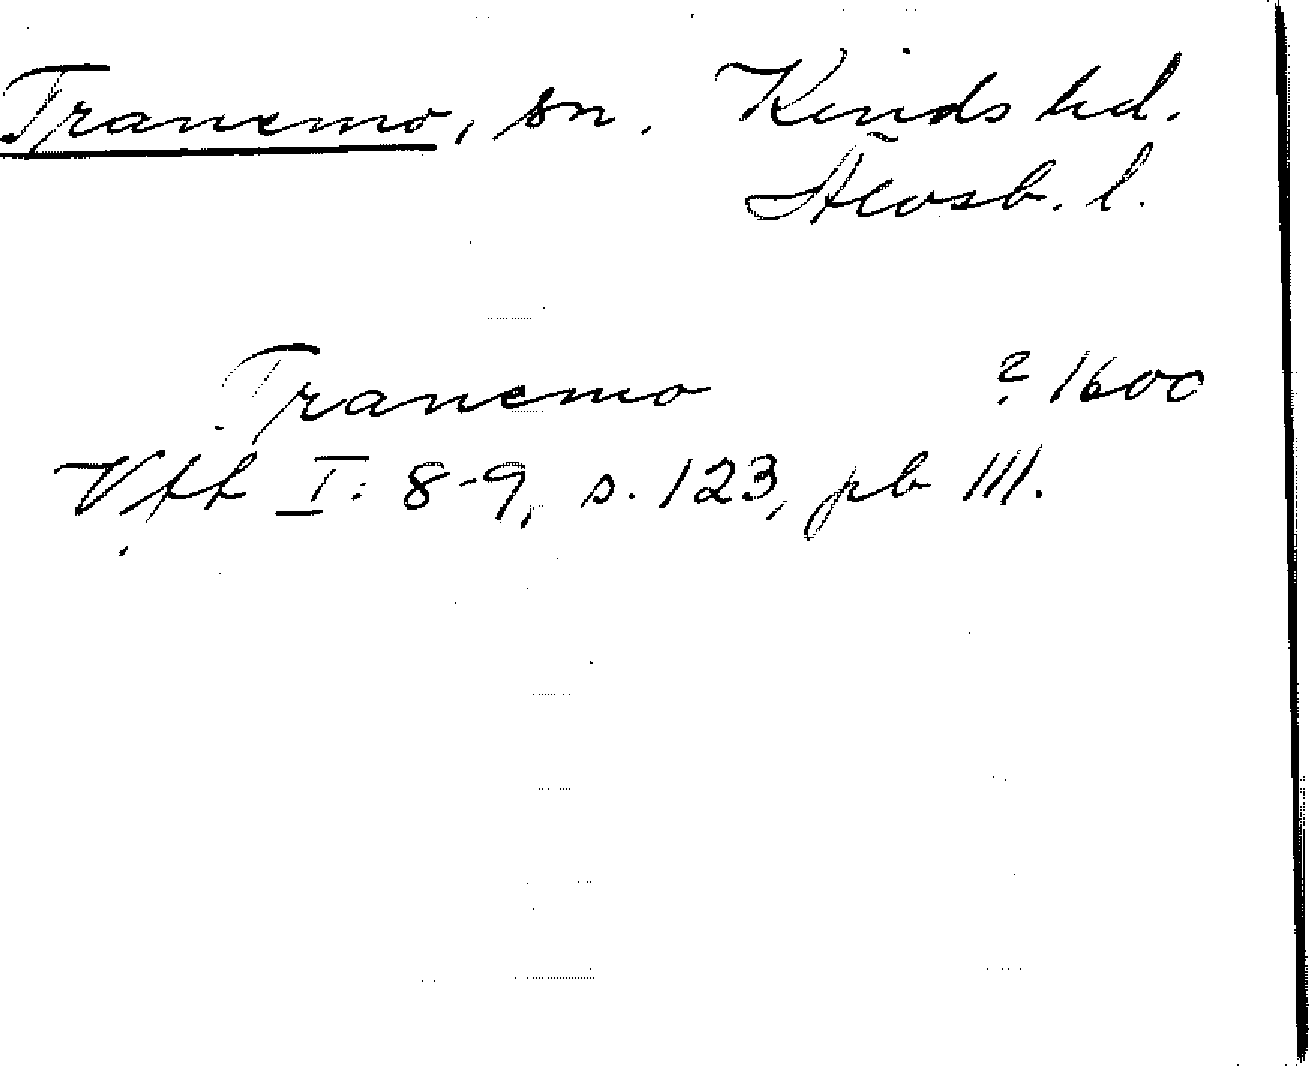 Tranemo, sn. Kinds hd.
Älvsb. l.
Tranemo ? 1600
Vft I: 8-9, s. 123, pb III.